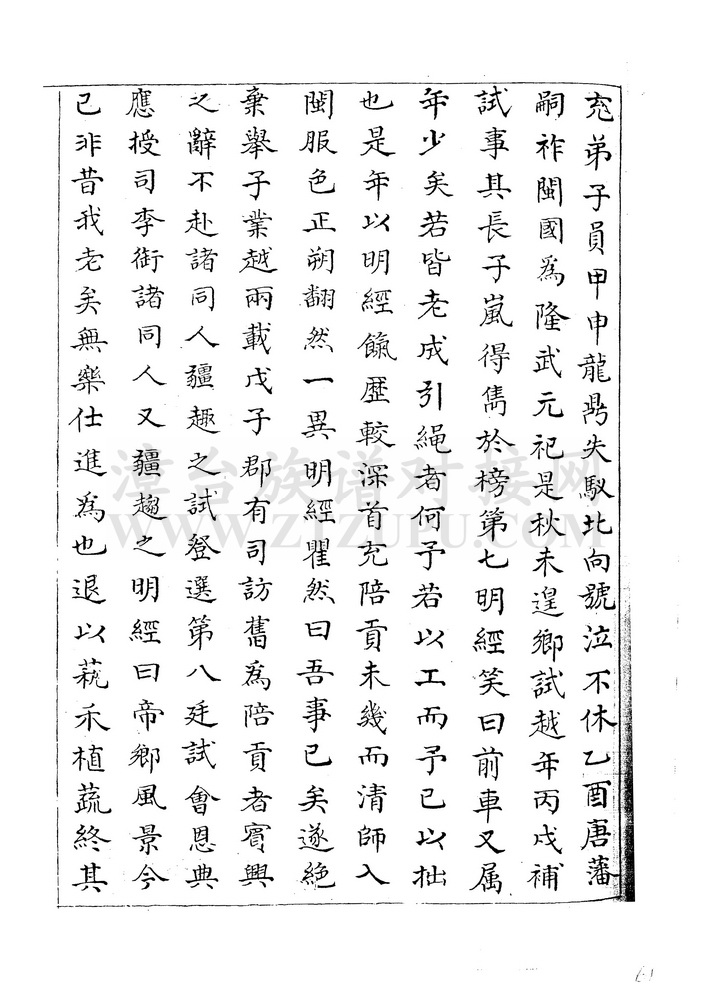 充弟子員甲申龍鼎失馭北向號泣不休乙酉唐藩
嗣祚閩國為隆武元祀是秋未遑鄉試越年丙戌補
試事其長子嵐得雋於榜第七明經笑曰前車又属
年少矣若皆老成引繩者何予若以工而予已以拙
也是年以明經餼歷較深首充陪貢未幾而清師入
閩服色正朔翻然一異明經瞿然曰吾事已矣遂絶
棄舉子業越兩載戊子郡有司訪舊為陪貢者賓興
之辭不赴諸同人疆趣之試登選第八廷試會恩典
應授司李銜諸同人又疆趨之明經曰帝鄉風景今
已非昔我老矣無樂仕進為也退以蓺禾植蔬終其
漳台族谱对接网
WWW.ZTZUPU.COM
61